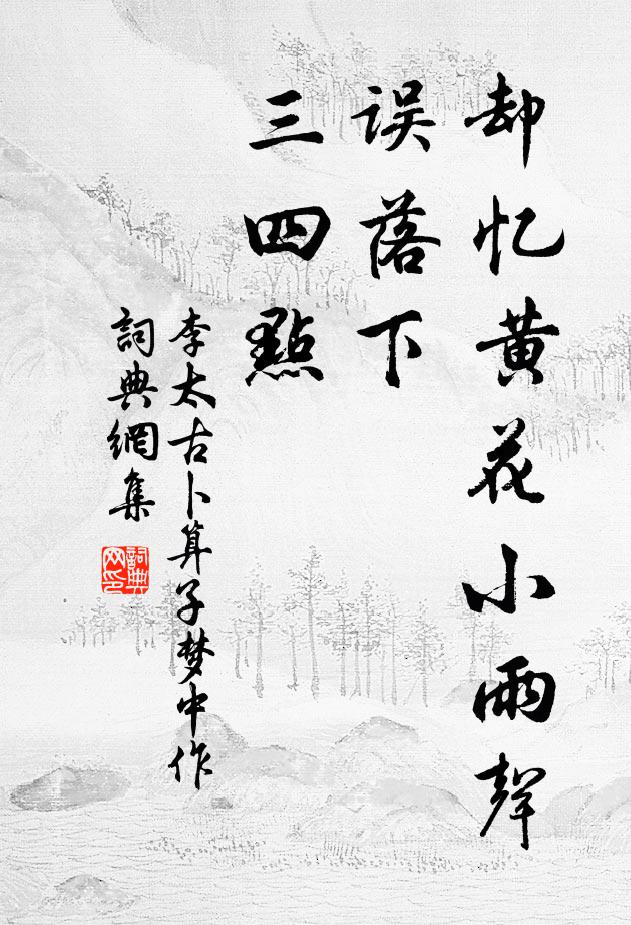 却忆黄花小雨聲
误落下
三四點
李太古卜算子梦中作
詞典網集
詞典网印